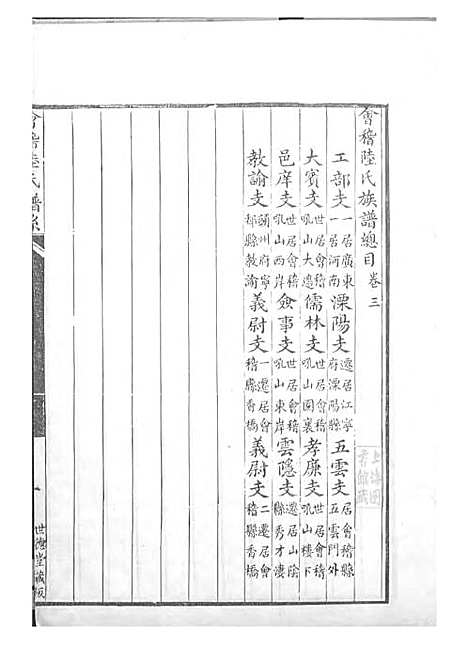 會稽陸氏族譜總目卷三
工部支 一居廣東 一居河南 溧陽支 遷居江寧 府溧陽縣 五雲支 居會稽縣 五雲門外
大賓支 世居會稽 吼山大邊 儒林支 世居會稽 吼山園裏 孝廉支 世居會稽 吼山樓下
邑庠支 世居會稽 吼山西岸 僉事支 世居會稽 吼山東岸 雲隱支 遷居山陰 縣秀才漊
教諭支 州府寧 縣教諭 義尉支 一遷居會 稽縣香橋 義尉支 二遷居會 稽縣香橋
會稽陸氏譜系
世德堂藏板
上海圖書館藏